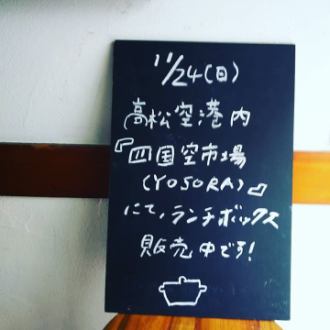 11/24(日)
高松空港内
『四国空市場
(YOSORA)』
にて、ランチボックス
販売中です!